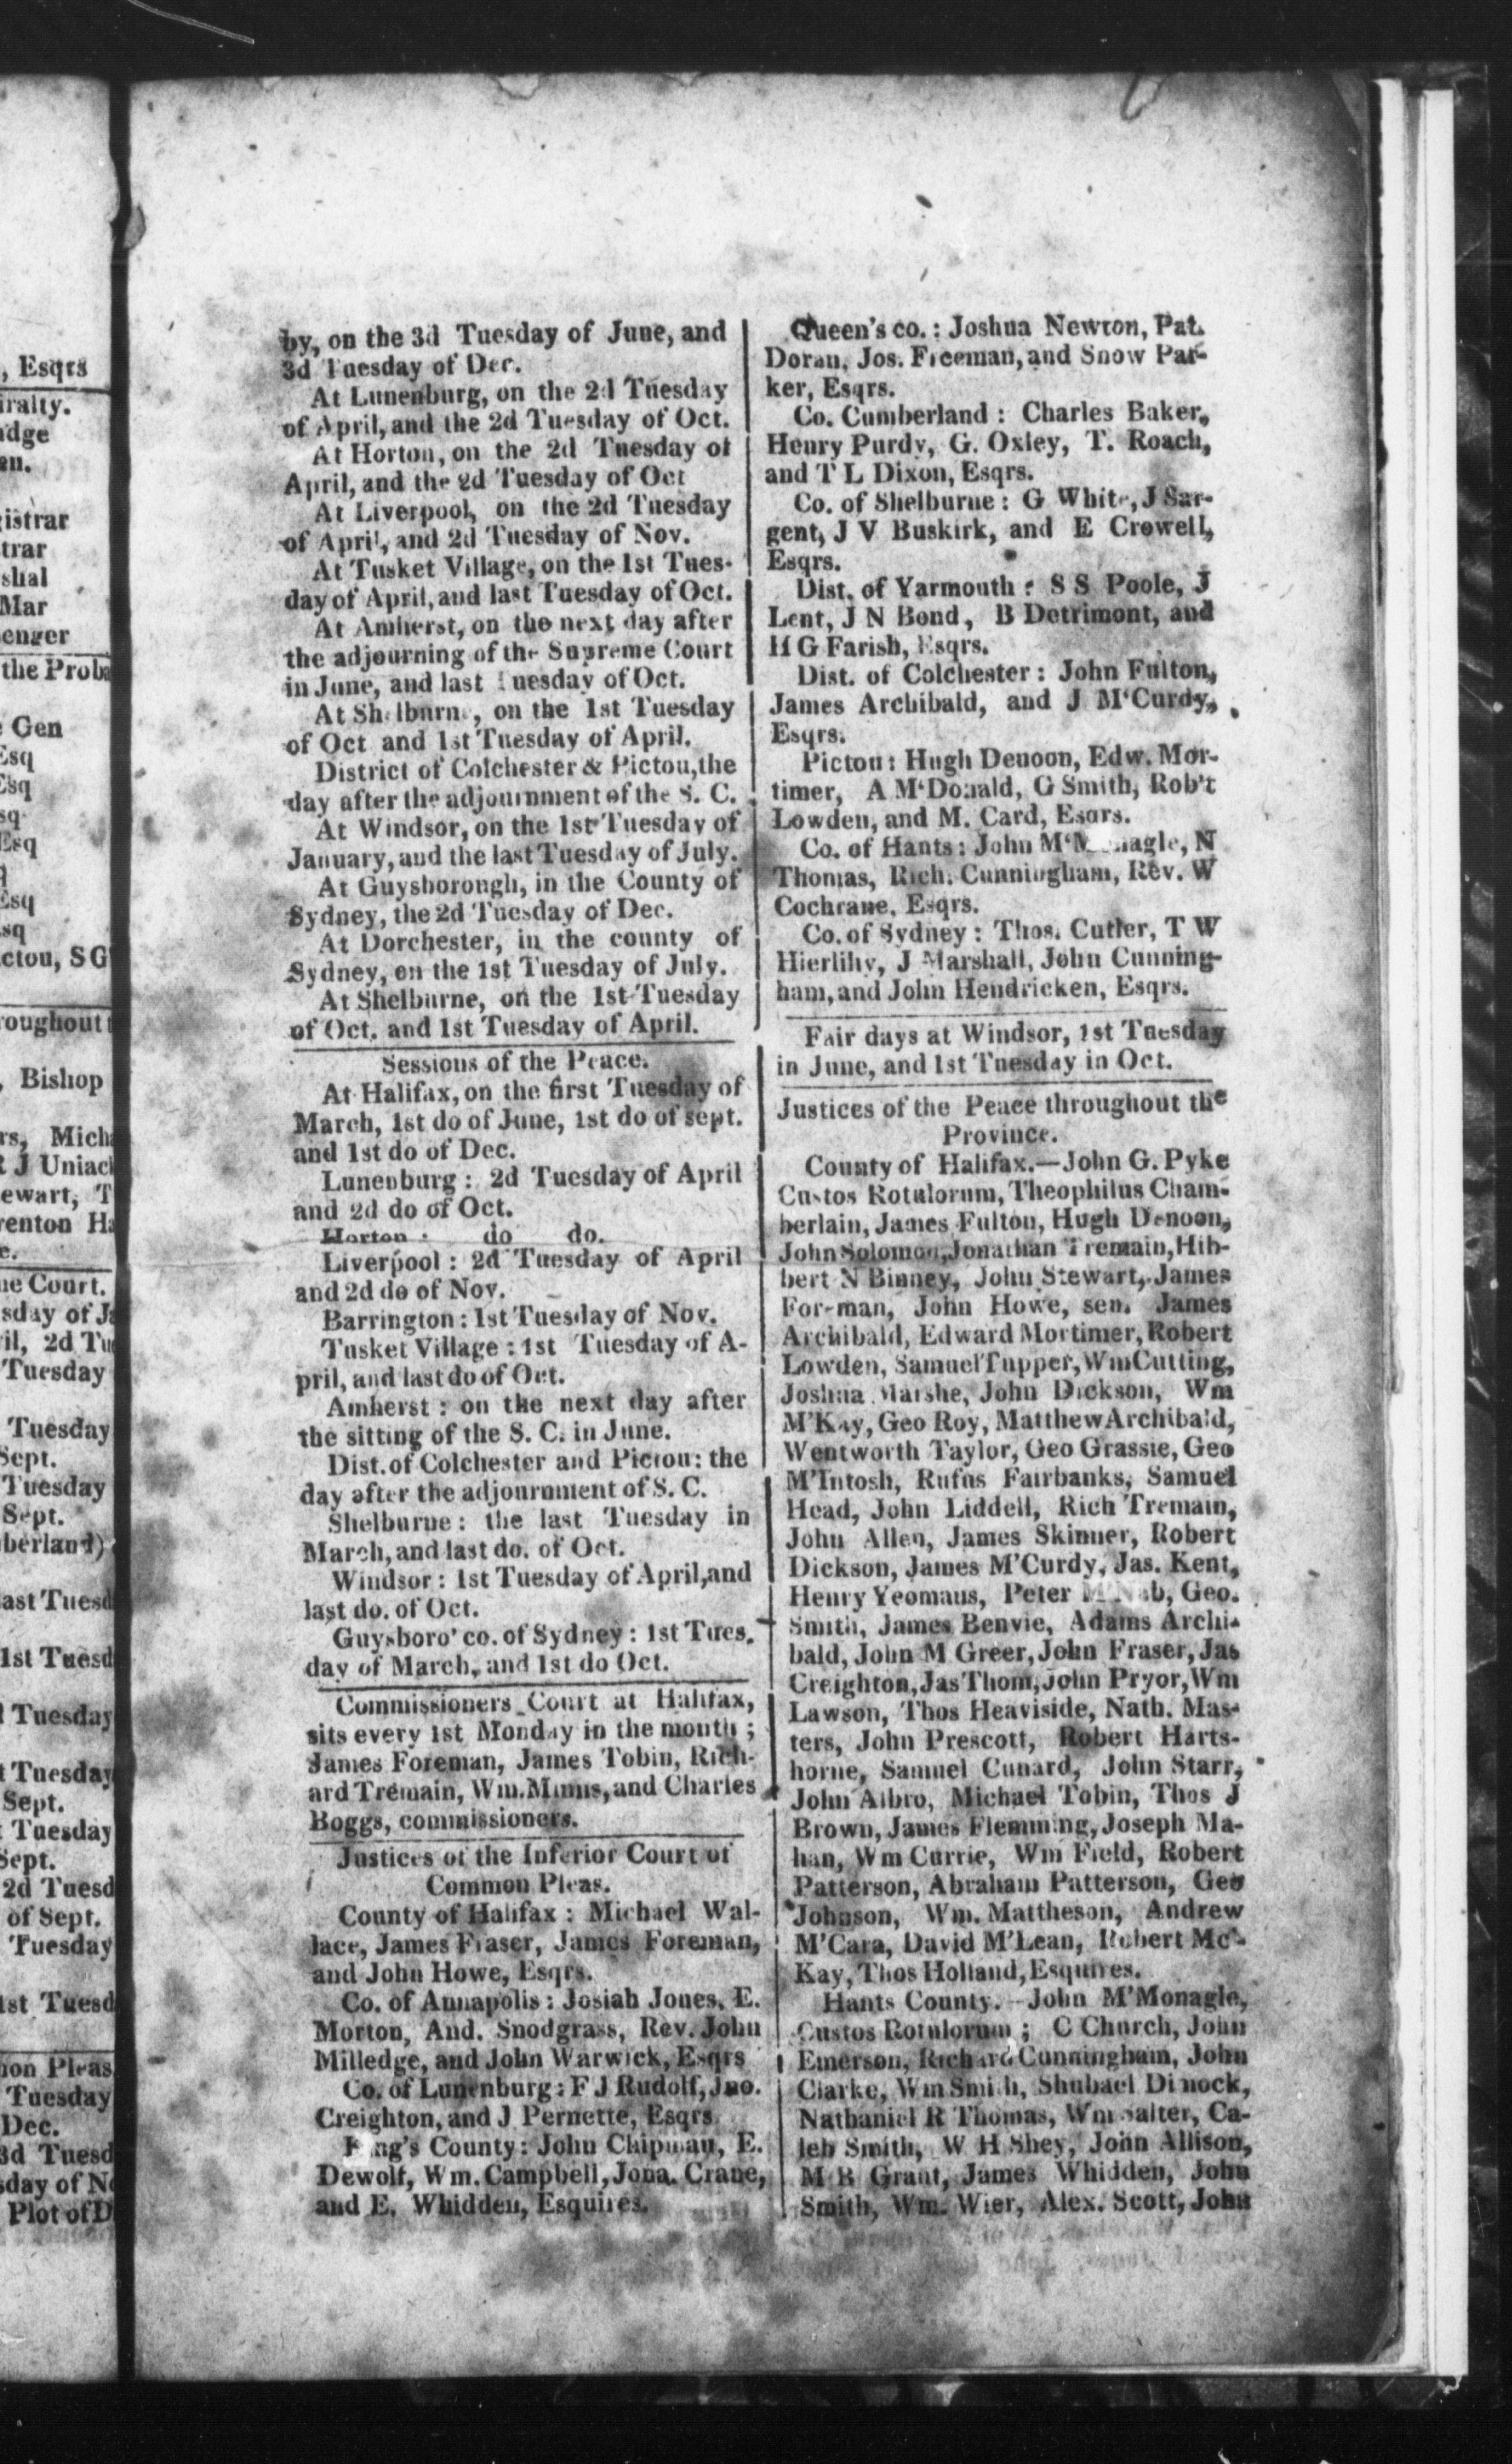 , Esqrs
iralty.
idge
en.
istrar
trar
shal
Mar
enger
the Proba
Gen
Esq
Esq
sq
Esq
Esq
sq
ctou, SG
roughout
, Bishop
rs, Mich
R J Uniack
ewart, T
renton Ha
e.
ne Court.
sday of Ja
il, 2d Tue
Tuesday
Tuesday
Sept.
Tuesday
Sept.
berland)
ast Tuesd
1st Tuesd
Tuesday
Tuesday
Sept.
Tuesday
Sept.
2d Tuesd
of Sept.
Tuesday
1st Tuesd
mon Pleas
Tuesday
Dec.
3d Tuesd
sday of No
Plot of D
by, on the 3d Tuesday of June, and
3d Tuesday of Dec.
At Lunenburg, on the 2d Tuesday
of April, and the 2d Tuesday of Oct.
At Horton, on the 2d Tuesday of
April, and the 2d Tuesday of Oct
At Liverpool, on the 2d Tuesday
of April, and 2d Tuesday of Nov.
At Tusket Village, on the 1st Tues-
day of April, and last Tuesday of Oct.
At Amherst, on the next day after
the adjourning of the Supreme Court
in June, and last Tuesday of Oct.
At Shelburne, on the 1st Tuesday
of Oct and 1st Tuesday of April.
District of Colchester & Pictou, the
day after the adjournment of the S. C.
At Windsor, on the 1st Tuesday of
January, and the last Tuesday of July.
At Guysborough, in the County of
Sydney, the 2d Tuesday of Dec.
At Dorchester, in the county of
Sydney, on the 1st Tuesday of July.
At Shelburne, on the 1st Tuesday
of Oct. and 1st Tuesday of April.
Sessions of the Peace.
At Halifax, on the first Tuesday of
March, 1st do of June, 1st do of sept.
and 1st do of Dec.
Lunenburg : 2d Tuesday of April
and 2d do of Oct.
Horton : do do.
Liverpool : 2d Tuesday of April
and 2d do of Nov.
Barrington : 1st Tuesday of Nov.
Tusket Village : 1st Tuesday of A-
pril, and last do of Oct.
Amherst : on the next day after
the sitting of the S. C. in June.
Dist. of Colchester and Pictou: the
day after the adjournment of S. C.
Shelburne : the last Tuesday in
March, and last do. of Oct.
Windsor : 1st Tuesday of April, and
last do. of Oct.
Guysboro' co. of Sydney : 1st Tues.
day of March, and 1st do Oct.
Commissioners Court at Halifax,
sits every 1st Monday in the month ;
James Foreman, James Tobin, Rich-
ard Tremain, Wm. Minns, and Charles
Boggs, commissioners.
Justices of the Inferior Court of
Common Pleas.
County of Halifax : Michael Wal-
lace, James Fraser, James Foreman,
and John Howe, Esqrs.
Co. of Annapolis : Josiah Jones, E.
Morton, And. Snodgrass, Rev. John
Milledge, and John Warwick, Esqrs
Co. of Lunenburg : F J Rudolf, Jno.
Creighton, and J Pernette, Esqrs
King's County : John Chipman, E.
Dewolf, Wm. Campbell, Jona. Crane,
and E. Whidden, Esquires.
Queen's co. : Joshua Newton, Pat.
Doran, Jos. Freeman, and Snow Par-
ker, Esqrs.
Co. Cumberland : Charles Baker,
Henry Purdy, G. Oxley, T. Roach,
and T L Dixon, Esqrs.
Co. of Shelburne : G White, J Sar-
gent, J V Buskirk, and E Crowell,
Esqrs.
Dist. of Yarmouth : S S Poole, J
Lent, J N Bond, B Detrimont, and
H G Farish, Esqrs.
Dist. of Colchester : John Fulton,
James Archibald, and J M'Curdy,
Esqrs.
Pictou : Hugh Denoon, Edw. Mor-
timer, A M'Donald, G Smith, Rob't
Lowden, and M. Card, Esqrs.
Co. of Hants : John M'Monagle, N
Thomas, Rich. Cunningham, Rev. W
Cochrane, Esqrs.
Co. of Sydney : Thos. Cutler, T W
Hierlihy, J Marshall, John Cunning-
ham, and John Hendricken, Esqrs.
Fair days at Windsor, 1st Tuesday
in June, and 1st Tuesday in Oct.
Justices of the Peace throughout the
Province.
County of Halifax.—John G. Pyke
Custos Rotulorum, Theophilus Cham-
berlain, James Fulton, Hugh Denoon,
John Solomon, Jonathan Tremain, Hib-
bert N Binney, John Stewart, James
Foreman, John Howe, sen. James
Archibald, Edward Mortimer, Robert
Lowden, Samuel Tupper, Wm Cutting,
Joshua Marshe, John Dickson, Wm
M'Kay, Geo Roy, Matthew Archibald,
Wentworth Taylor, Geo Grassie, Geo
M'Intosh, Rufus Fairbanks, Samuel
Head, John Liddell, Rich Tremain,
John Allen, James Skinner, Robert
Dickson, James M'Curdy, Jas. Kent,
Henry Yeomans, Peter M'Nab, Geo.
Smith, James Benvie, Adams Archi-
bald, John M Greer, John Fraser, Jas
Creighton, Jas Thom, John Pryor, Wm
Lawson, Thos Heaviside, Nath. Mas-
ters, John Prescott, Robert Harts-
horne, Samuel Cunard, John Starr,
John Albro, Michael Tobin, Thos J
Brown, James Flemming, Joseph Ma-
han, Wm Currie, Wm Field, Robert
Patterson, Abraham Patterson, Geo
Johnson, Wm. Mattheson, Andrew
M'Cara, David M'Lean, Robert Mc-
Kay, Thos Holland, Esquires.
Hants County.—John M'Monagle,
Custos Rotulorum ; C Church, John
Emerson, Richard Cunningham, John
Clarke, Wm Smith, Shubael Dimock,
Nathaniel R Thomas, Wm Salter, Ca-
leb Smith, W H Shey, John Allison,
M B Grant, James Whidden, John
Smith, Wm. Wier, Alex. Scott, John